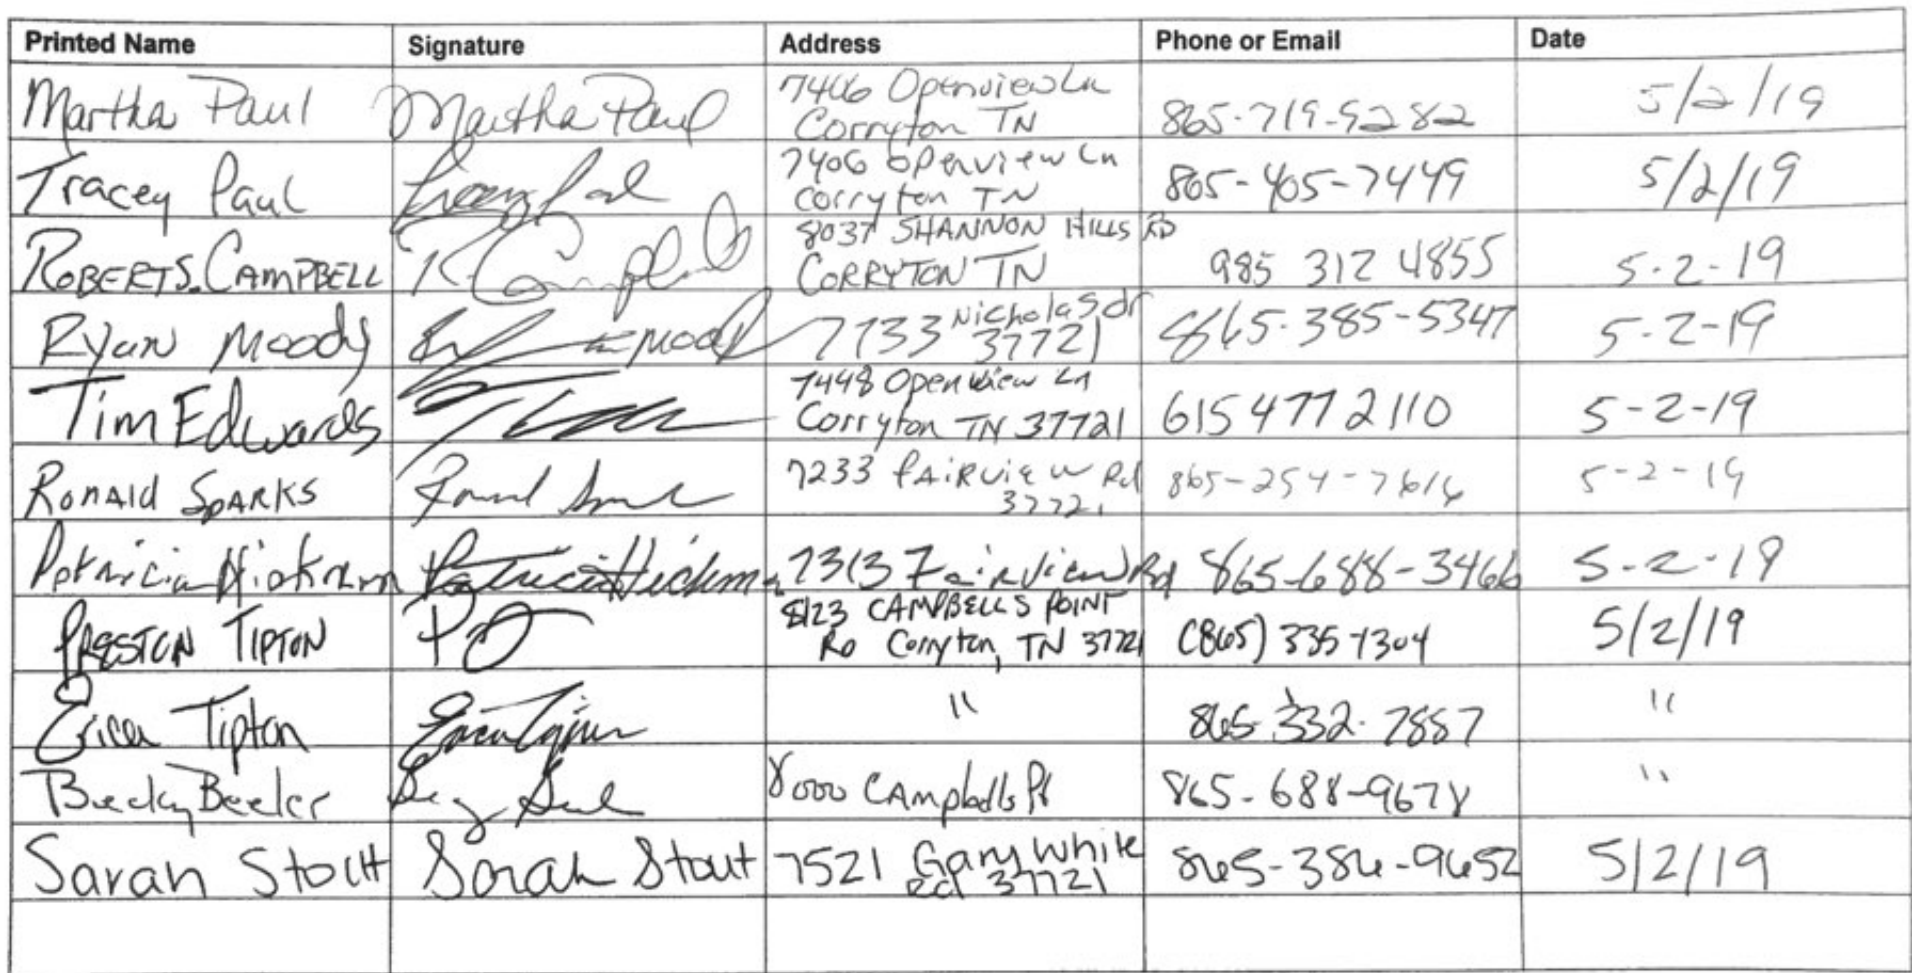 Printed Name Signature Address Phone or Email Date
Martha Paul Martha Paul 7406 Openview Ln
Corryton TN 865-719-9282 5/2/19
Tracey Paul Tracey Paul 7406 Openview Ln
Corryton TN 865-405-7449 5/2/19
ROBERT S. CAMPBELL R Campbell 8037 SHANNON HILLS RD
CORRYTON TN 985 312 4855 5-2-19
Ryan Moody Moody 7733 Nicholas dr
37721 865-385-5347 5-2-19
Tim Edwards 7448 Openview Ln
Corryton TN 37721 615 477 2110 5-2-19
RONAld SPARKS 7233 FAIRVIEW Rd
37721 865-254-7616 5-2-19
Patricia Hickman Patricia Hickman 7313 Fairview Rd 865-688-3466 5-2-19
PRESTON TIPTON PT 8123 CAMPBELLS POINT
RD Corryton, TN 37721 (865) 335-1304 5/2/19
Erica Tipton Erica Tipton " 865-332-7887 "
Becky Beeler 8000 CAmpbells Pt 865-688-9678 "
Sarah Stout Sarah Stout 7521 Gary White
Rd 37721 865-384-9652 5/2/19